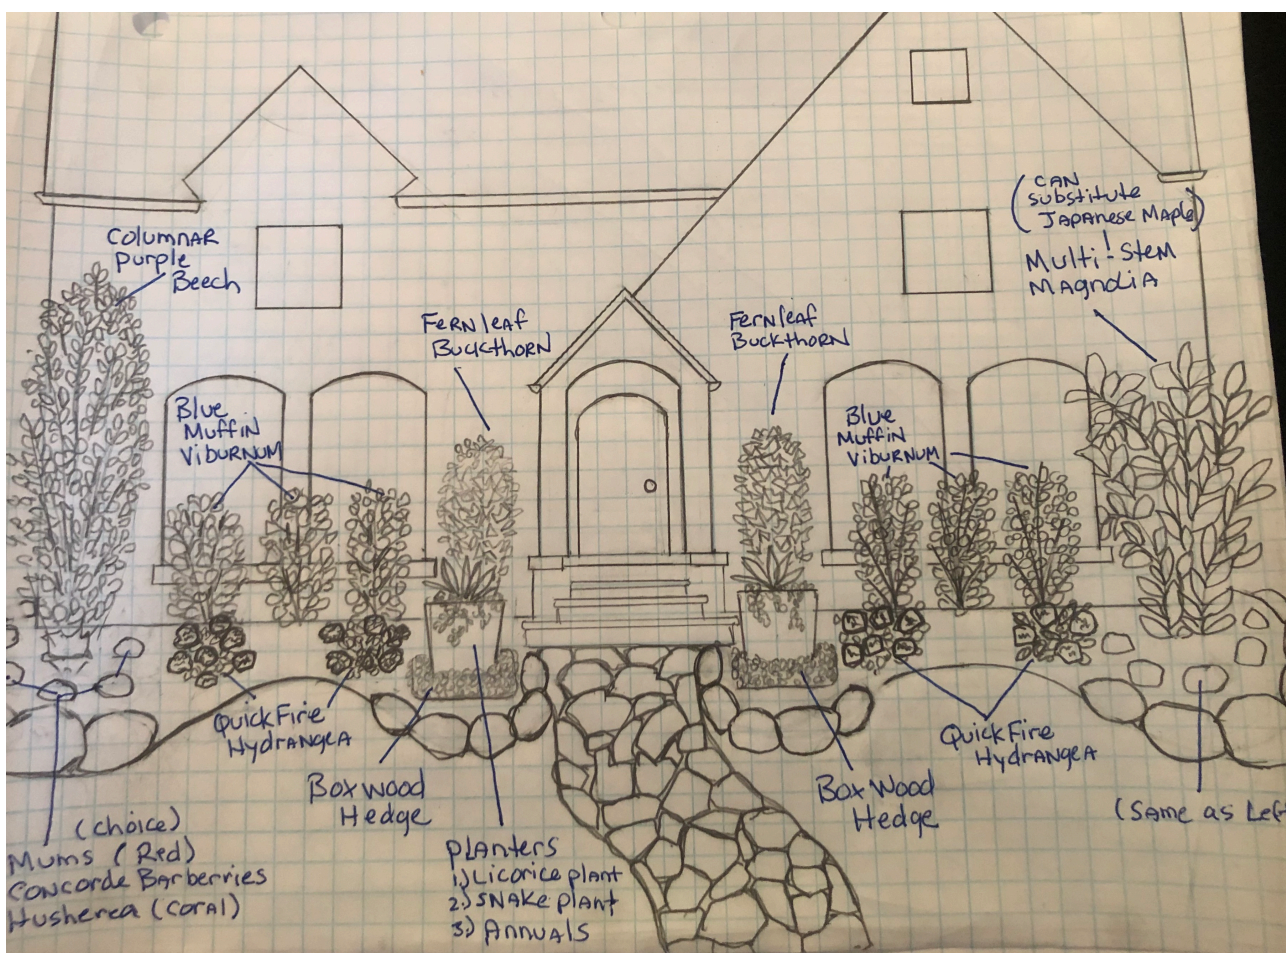 (CAN
substitute
Japanese Maple)
Multi-Stem
Magnolia
Columnar
Purple
Beech
Fernleaf
Buckthorn
Fernleaf
Buckthorn
Blue
Muffin
Viburnum
Blue
Muffin
Viburnum
QuickFire
Hydrangea
QuickFire
Hydrangea
Boxwood
Hedge
Boxwood
Hedge
(Same as Left
(choice)
Mums (Red)
Concorde Barberries
Husherea (Coral)
Planters
1.) Licorice plant
2.) Snake plant
3.) Annuals